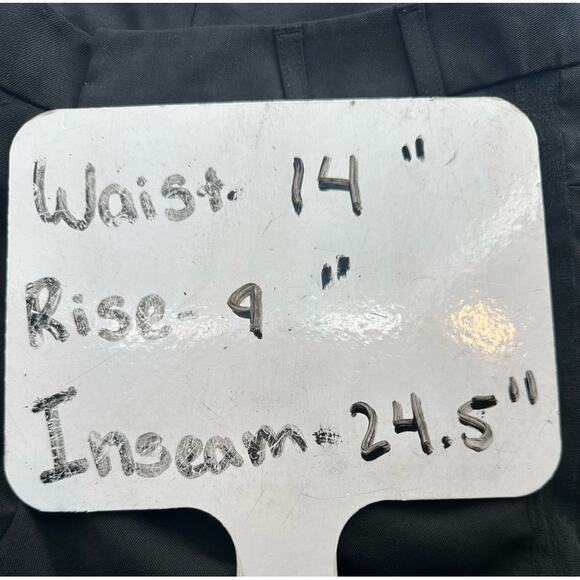 Waist- 14"
Rise- 9"
Inseam- 24.5"